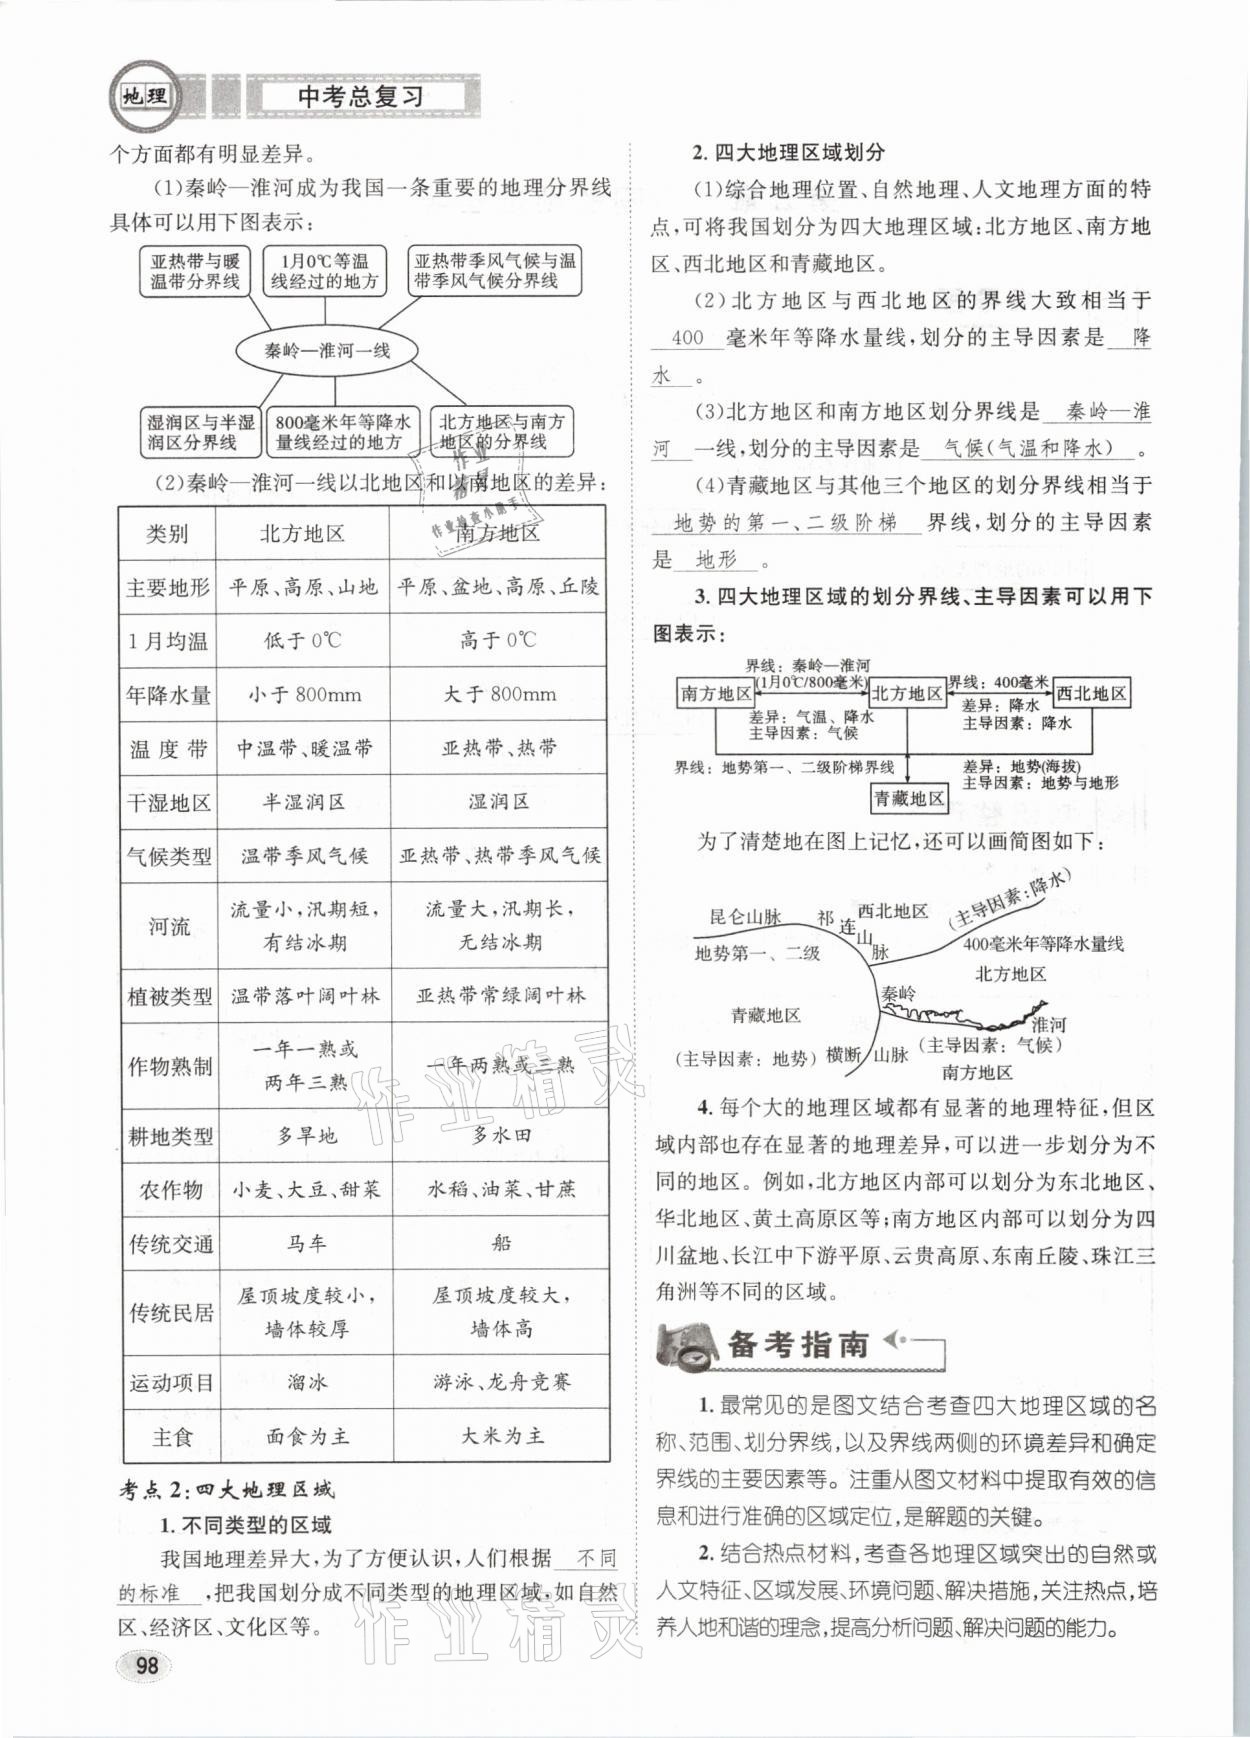 地理
中考总复习
个方面都有明显差异。
(1)秦岭—淮河成为我国一条重要的地理分界线
具体可以用下图表示:
亚热带与暖
温带分界线
1月0℃等温
线经过的地方
亚热带季风气候与温
带季风气候分界线
秦岭—淮河一线
湿润区与半湿
润区分界线
800毫米年等降水
量线经过的地方
北方地区与南方
地区的分界线
(2)秦岭—淮河一线以北地区和以南地区的差异:
类别 北方地区 南方地区
主要地形 平原、高原、山地 平原、盆地、高原、丘陵
1月均温 低于0℃ 高于0℃
年降水量 小于800mm 大于800mm
温度带 中温带、暖温带 亚热带、热带
干湿地区 半湿润区 湿润区
气候类型 温带季风气候 亚热带、热带季风气候
河流 流量小,汛期短,有结冰期 流量大,汛期长,无结冰期
植被类型 温带落叶阔叶林 亚热带常绿阔叶林
作物熟制 一年一熟或两年三熟 一年两熟或三熟
耕地类型 多旱地 多水田
农作物 小麦、大豆、甜菜 水稻、油菜、甘蔗
传统交通 马车 船
传统民居 屋顶坡度较小,墙体较厚 屋顶坡度较大,墙体高
运动项目 溜冰 游泳、龙舟竞赛
主食 面食为主 大米为主
考点2:四大地理区域
1.不同类型的区域
我国地理差异大,为了方便认识,人们根据 不同
的标准 ,把我国划分成不同类型的地理区域,如自然
区、经济区、文化区等。
98
2.四大地理区域划分
(1)综合地理位置、自然地理、人文地理方面的特
点,可将我国划分为四大地理区域:北方地区、南方地
区、西北地区和青藏地区。
(2)北方地区与西北地区的界线大致相当于
400 毫米年等降水量线,划分的主导因素是 降
水 。
(3)北方地区和南方地区划分界线是 秦岭—淮
河 一线,划分的主导因素是 气候(气温和降水) 。
(4)青藏地区与其他三个地区的划分界线相当于
地势的第一、二级阶梯 界线,划分的主导因素
是 地形 。
3.四大地理区域的划分界线、主导因素可以用下
图表示:
界线:秦岭—淮河
(1月0℃/800毫米)
界线:400毫米
南方地区
北方地区
西北地区
差异:气温、降水
主导因素:气候
差异:降水
主导因素:降水
界线:地势第一、二级阶梯界线
差异:地势(海拔)
主导因素:地势与地形
青藏地区
为了清楚地在图上记忆,还可以画简图如下:
昆仑山脉
祁连山脉
西北地区
(主导因素:降水)
地势第一、二级
400毫米年等降水量线
北方地区
秦岭
青藏地区
淮河
(主导因素:地势)
横断山脉
(主导因素:气候)
南方地区
4.每个大的地理区域都有显著的地理特征,但区
域内部也存在显著的地理差异,可以进一步划分为不
同的地区。例如,北方地区内部可以划分为东北地区、
华北地区、黄土高原区等;南方地区内部可以划分为四
川盆地、长江中下游平原、云贵高原、东南丘陵、珠江三
角洲等不同的区域。
备考指南
1.最常见的是图文结合考查四大地理区域的名
称、范围、划分界线,以及界线两侧的环境差异和确定
界线的主要因素等。注重从图文材料中提取有效的信
息和进行准确的区域定位,是解题的关键。
2.结合热点材料,考查各地理区域突出的自然或
人文特征、区域发展、环境问题、解决措施,关注热点,培
养人地和谐的理念,提高分析问题、解决问题的能力。
作业精灵
作业精灵
作业
精灵
作业检查小助手